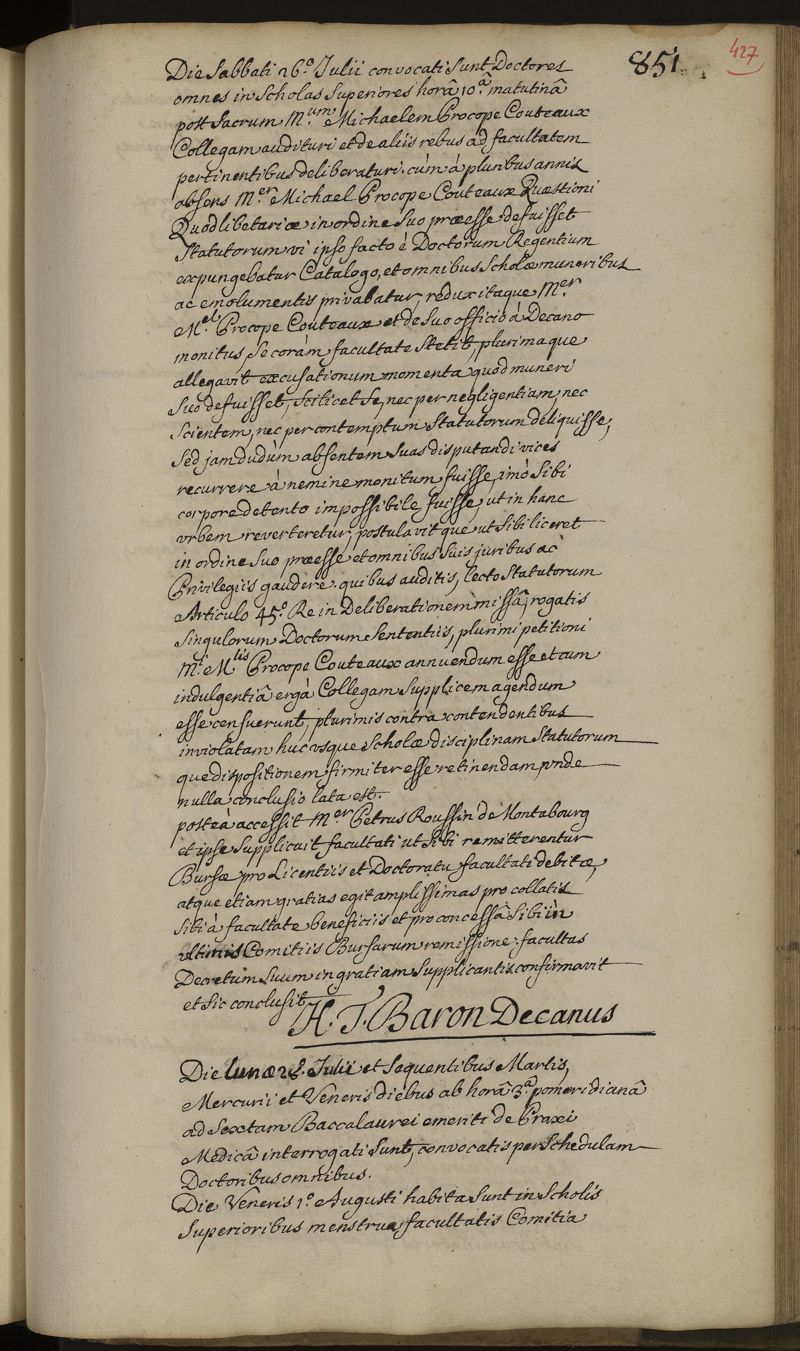 851.
427
Die Sabbati 26.º Julii convocati sunt Doctores
omnes in Scholas Superiores horâ 10.ª matutinâ
post Sacrum M.um Michaelem Procope Couteaux
Collegam audituri et de aliis rebus ad facultatem
pertinentibus deliberaturi. cùm à pluribus annis
absens M.er Michael Procope Couteaux Quæstioni
Quodlibetariæ in ordine Suo præesse defuisset
Statutorum vi ipso facto è Doctorum Regentium
expungebatur Catalogo, et omnibus Scholæ muneribus
ac emolumentis privabatur, redux itaque M.er
M.el Procope Couteaux et de Suo officio à Decano
monitus, Se coràm facultate Stetit, plurimaque
allegavit excusationum momenta quod muneri
Suo defuisset, Scilicet Se, nec per negligentiam, nec
Scientem, nec per contemptum Statutorum deliquisse,
Sed jamdudùm absentem Suas disputandi vices
recurrere à nemine monitum fuisse, imò Sibi
corpore detento impossibile fuisse, ut in hanc
vrbem reverteretur, postulavitque ut Sibi liceret
in ordine Suo præesse et omnibus Suis juribus ac
Privilegiis gaudere. quibus auditis, lecto Statutorum
Articulo 45.º Re in Deliberationem missâ, rogatis
Singulorum Doctorum Sententiis, plurimi petitioni
M.i M.lis Procope Couteaux annuendum esse et cum
indulgentiâ ergà Collegam Supplicem agendum
esse censuerunt, plurimis contra contendentibus
inviolatam hucvsque Scholæ disciplinam Statutorum
que dispositionem firmiter esse retinendam vnde
nulla conclusio lata est.
posteà accessit M.er Petrus Roussin de Montabourg
et ipse Supplicuit facultati ut Sibi remitterentur
Bursæ pro Licentiis et Doctoratu facultati debitæ,
atque etiam gratias egit amplissimas pro collatis
Sibi à facultate beneficiis et pro concessâ Sibi in
vltimis Comitiis Bursarum remissione. facultas
Decretum Suum in gratiam Supplicantis confirmavit
et Sic conclusit
H. T. Baron Decanus
Die lunæ 28. Julii et Sequentibus Martis,
Mercurii et Veneris diebus ab horâ 3.ª pomeridianâ
ad Sextam Baccalaurei emeriti de Praxi
Medicâ interrogati Sunt, convocatis per Schedulam
Doctoribus omnibus.
Die Veneris 1.º Augusti habita Sunt in Scholis
Superioribus menstrua facultatis Comitia